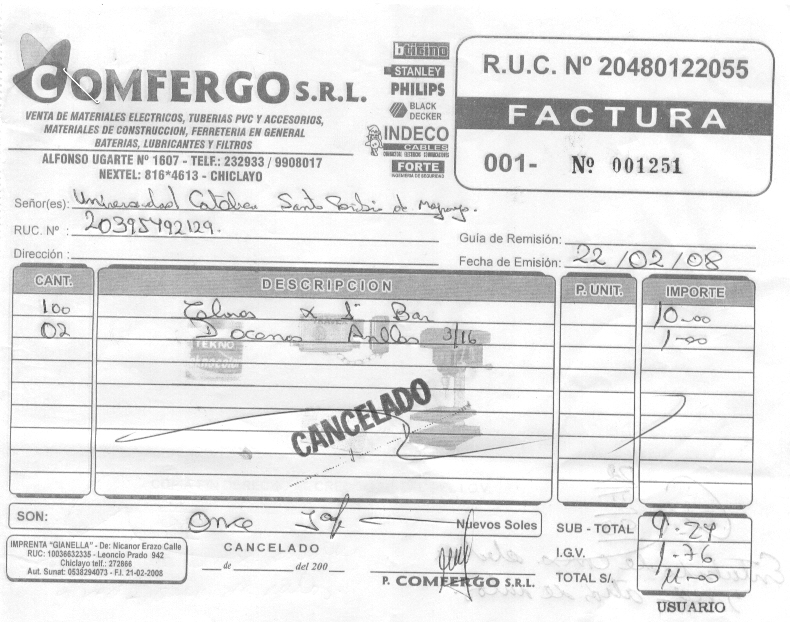 COMFERGO S.R.L.
VENTA DE MATERIALES ELECTRICOS, TUBERIAS PVC Y ACCESORIOS,
MATERIALES DE CONSTRUCCION, FERRETERIA EN GENERAL
BATERIAS, LUBRICANTES Y FILTROS
ALFONSO UGARTE Nº 1607 - TELF.: 232933 / 9908017
NEXTEL: 816*4613 - CHICLAYO
bticino
STANLEY
PHILIPS
BLACK
DECKER
INDECO
CABLES
FORTE
R.U.C. Nº 20480122055
FACTURA
001- Nº 001251
Señor(es): Universidad Católica Santo Toribio de Mogrovejo.
RUC. Nº : 20395492129.
Dirección :
Guía de Remisión:
Fecha de Emisión: 22/02/08
CANT. DESCRIPCION P. UNIT. IMPORTE
100 x 1" 10.00
02 Docenas Anillos 3/16 1.00
TEKNO
CANCELADO
SON: Once Nuevos Soles
SUB - TOTAL 9.24
I.G.V. 1.76
TOTAL S/. 11.00
USUARIO
IMPRENTA "GIANELLA" - De: Nicanor Erazo Calle
RUC: 10036632335 - Leoncio Prado 942
Chiclayo telf.: 272866
Aut. Sunat: 0538294073 - F.I. 21-02-2008
CANCELADO
de del 200
P. COMFERGO S.R.L.